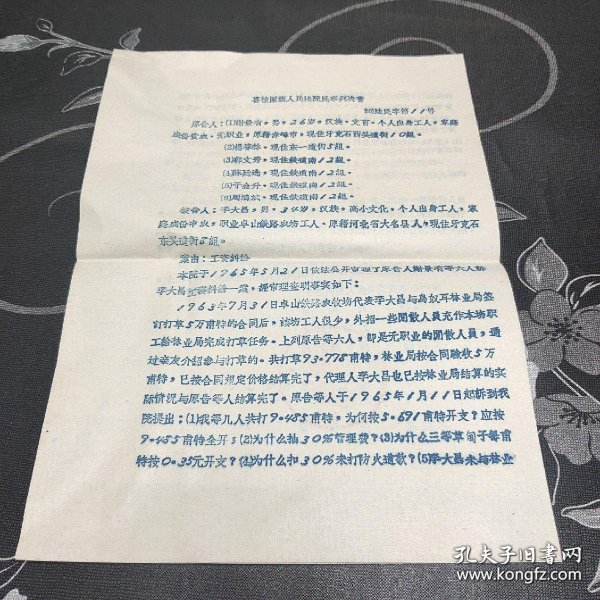 喜桂图旗人民法院民事判决书
法民字第11号
原告人:(1)谢景有,男,26岁,汉族,文盲,个人出身工人,家庭
成份贫农,无职业,原籍赤峰市,现住牙克石西头道街10组。
(2)杨春林,现住东一道街5组。
(3)郭文秀,现住铁道南12组。
(4)孙廷选,现住铁道南12组。
(5)于金升,现住铁道南12组。
(6)周鸿欣,现住铁道南12组。
被告人:李大昌,男,34岁,汉族,高小文化,个人出身工人,家
庭成份中农,职业卓山铁路农场工人,原籍河北省大名县人,现住牙克石
东头道街5组。
案由:工资纠纷
本院于1965年5月21日依法公开审理了原告人谢景有等六人诉
李大昌工资纠纷一案,经审理查明事实如下:
1963年7月31日卓山铁路农牧场代表李大昌与乌奴耳林业局签
订打草5万甫特的合同后,该场工人很少,外招一些闲散人员充作本场职
工给林业局完成打草任务。上列原告等六人,即是无职业的闲散人员,通
过亲友介绍参与打草的。共打草93.778甫特,林业局按合同验收5万
甫特,已按合同规定价格结算完了,代理人李大昌也已按林业局结算的实
际情况与原告等人结算完了。原告等人于1965年1月11日起诉到我
院提出:(1)我等几人共打9.485甫特,为何按5.691甫特开支?应按
9.485甫特全开;(2)为什么抽30%管理费?(3)为什么三等草甸子每甫
特按0.35元开支?(4)为什么扣30%未打防火道款?(5)李大昌未与林业
孔夫子旧书网
www.kongfz.com